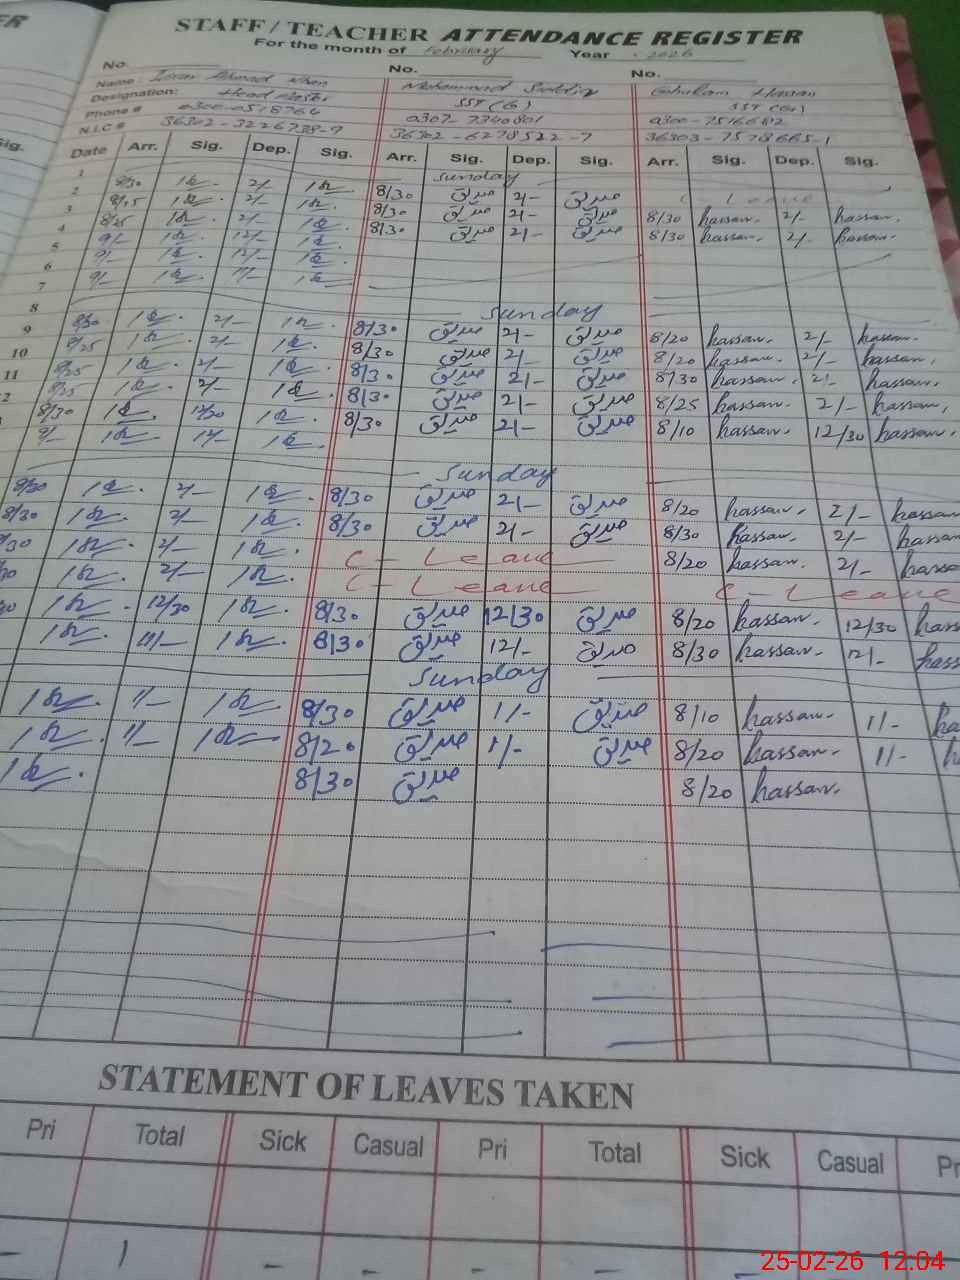 STAFF / TEACHER ATTENDANCE REGISTER
For the month of February Year 2026
No. No. No.
Name: Ahmad Khan Muhammad Ghulam Hassan
Designation: Head SST (G) SST (G)
Phone # 0300-0518764 0307-7340801 0300-7516682
N.I.C # 36302-3226738-9 36302-6278522-7 36303-7578665-1
Date Arr. Sig. Dep. Sig. Arr. Sig. Dep. Sig. Arr. Sig. Dep. Sig.
1 Sunday
2 8/30 2/- 8/30 صدیق 2/- صدیق C - Leave
3 8/25 2/- 8/30 صدیق 2/- صدیق 8/30 hassan. 2/- hassan.
4 8/25 2/- 8/30 صدیق 2/- صدیق 8/30 hassan. 2/- hassan.
5 9/- 12/-
6 9/- 12/-
7 9/- 11/-
8 Sunday
9 8/30 2/- 8/30 صدیق 2/- صدیق 8/20 hassan. 2/- hassan.
10 8/25 2/- 8/30 صدیق 2/- صدیق 8/20 hassan. 2/- hassan.
11 8/25 2/- 8/30 صدیق 2/- صدیق 8/30 hassan. 2/- hassan.
8/25 2/- 8/30 صدیق 2/- صدیق 8/25 hassan. 2/- hassan.
8/30 12/30 8/30 صدیق 2/- صدیق 8/10 hassan. 12/30 hassan.
9/- 12/-
Sunday
8/30 2/- 8/30 صدیق 2/- صدیق 8/20 hassan. 2/- hassan
8/30 2/- 8/30 صدیق 2/- صدیق 8/30 hassan. 2/- hassan
/30 2/- C - Leave 8/20 hassan. 2/-
30 2/- C - Leave C - Leave
12/30 8/30 صدیق 12/30 صدیق 8/20 hassan. 12/30
11/- 8/30 صدیق 12/- صدیق 8/30 hassan. 12/-
Sunday
1/- 8/30 صدیق 1/- صدیق 8/10 hassan. 1/-
1/- 8/20 صدیق 1/- صدیق 8/20 hassan. 1/-
8/30 صدیق 8/20 hassan.
STATEMENT OF LEAVES TAKEN
Pri Total Sick Casual Pri Total Sick Casual Pr
- 1 - - - - -
25-02-26 12:04